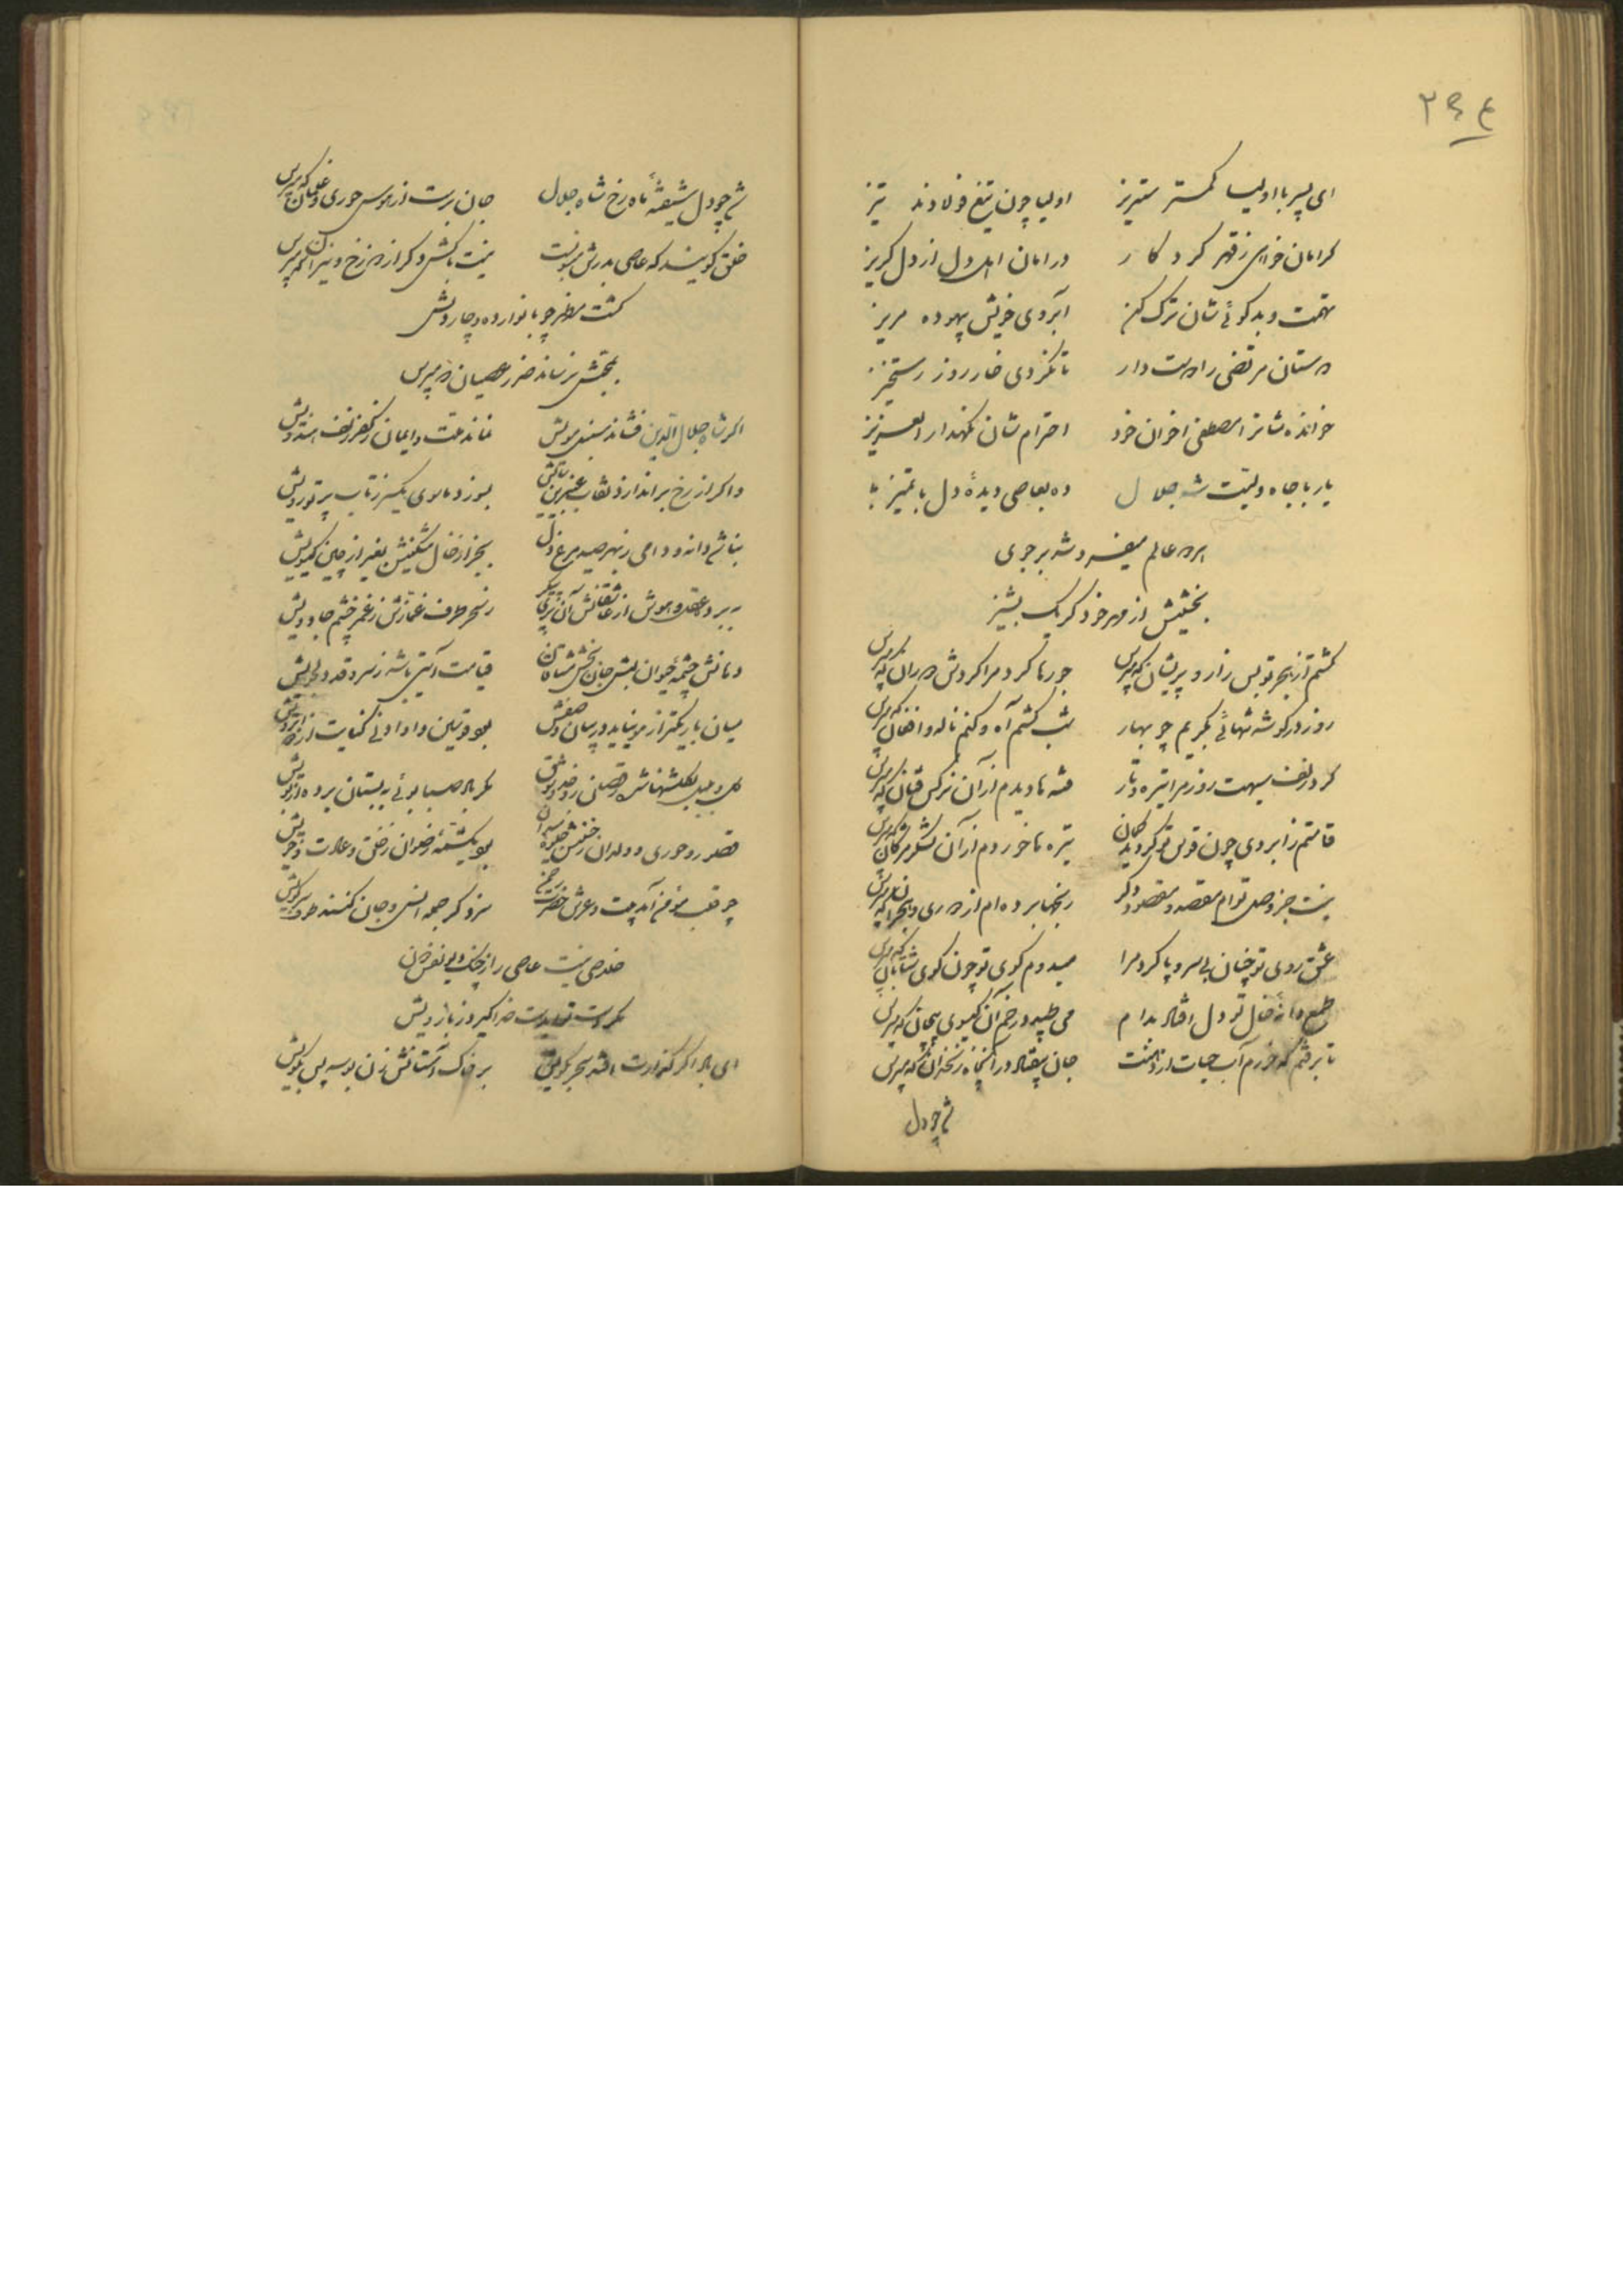 ۲۹۴
ای پسر با اولیا کمتر ستیز اولیا چون تیغ فولادند تیز
گر امان خواهی ز قهر کردکار در امان اهل دل از دل گریز
تهمت و بدگوئی شان ترک کن آبروی خویش بیهوده مریز
دوستان مرتضی را دوست دار تا نگردی خار روز رستخیز
خوانده شانرا مصطفی اخوان خود احترام شان نگهدار العزیز
یا رب با جاه ولیت شه جلال ده بعاصی دیدهٔ دل با تمیز
هر دو عالم میفروشد بر جوی
بخشیش از مهر خود گر یک پشیز
گشتم از هجر تو بس زار و پریشان که مپرس جورها کرد مرا گردش دوران که مپرس
روز در گوشه تنهائی بگریم چو بهار شب کشم آه و کنم ناله و افغان که مپرس
کرد زلف سیهت روز مرا تیره و تار فتنه ها دیدم از آن نرگس فتان که مپرس
قامتم ز ابروی چون قوس تو گردید کمان تیره ها خوردم از آن لشکر مژگان که مپرس
نیست جز وصل توام مقصد و مقصود دگر رنجها برده ام از دوری و هجران که مپرس
عشق روی تو چنان بی سر و پا کرد مرا میدوم کوی تو چون گوی شتابان که مپرس
طمع دانهٔ خال تو دل افتاد بدام می طپید در خم آن گیسوی پیچان که مپرس
تا برفتم که خورم آب حیات از دهنت جان بیفتاد در آنچاه زنخدان که مپرس
شد چو دل
شد چو دل شیفتهٔ ماه رخ شاه جلال جان برست از هوس حوری و غلمان که مپرس
خلق گویند که عاصی بدرش منسوبست نیست باکش دگر از دوزخ و نیران که مپرس
گشت مظفر چو با نوار ده و چار دوش
بخشش نرساند ضرر عصیان که مپرس
اگر شاه جلال الدین فشاند سنبل مویش نماند ملت و ایمان ز کفر زلف هندویش
و اگر از رخ بر اندازد نقاب عنبرین بسوزد ماسوی یکسر ز تاب پرتو رویش
نباشد دانه و دامی ز بهر صید مرغ دل بجز از خال مشکینش بغیر از چین گیسویش
ببرد عقل و هوش از عاشقانش آن پری پیکر ز سحر طرف غمازش ز غمز چشم جادویش
دهانش چشمهٔ حیوان لبش جان بخش مشتاقان قیامت آیتی باشد ز سرو قد دلجویش
میان باریکتر از مو نیاید در بیان وصفش بود قوسین و او ادنی کنایت از دو ابرویش
گل و بلبل بگلشنها
قصور و حوری و ولدان بود یکشمهٔ رضوان ز خلق و عادت و خویش
چو قلب مؤمن آمد بیت و عرش حضرت رحمن سزد گر جمله انس و جان کنند طوف سر کویش
خلاصی نیست عاصی را ز چنگ دیو نفس دون
مگر دست ید اللهی
ای باد اگر گذارت افتد سحر بکویش بر خاک آستانش زن بوسه پس بگویش